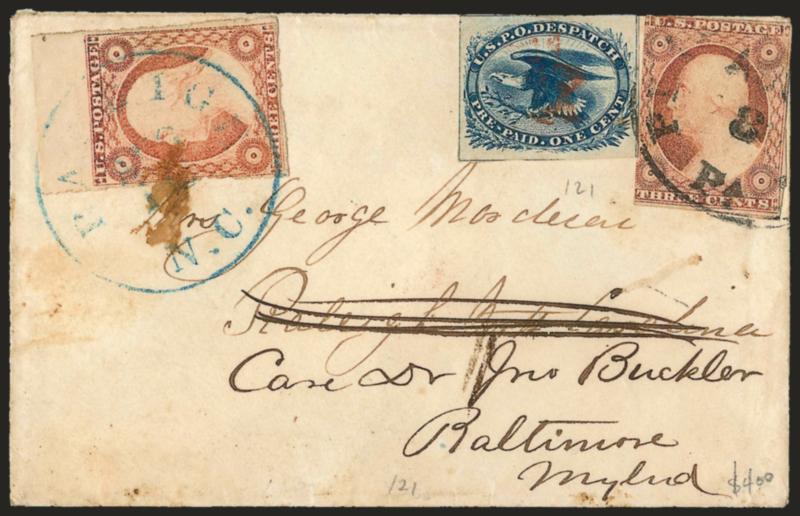 U.S. POSTAGE
EE CENTS
RALEIGH
N.C.
U.S.P.O. DESPATCH
PRE-PAID. ONE CENT
U.S. POSTAGE
THREE CENTS
8
PA
121
Mrs George Mordecai
Raleigh North Carolina
Care Dr Jno Buckler
Baltimore
Mylnd
121
$400